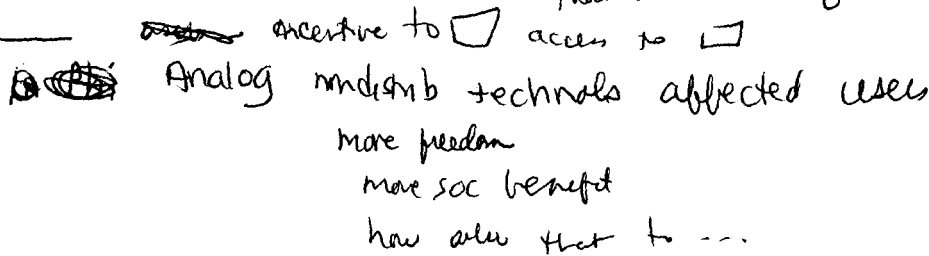 incentive to access to
Analog technols affected users
more freedom
more soc benefit
how that to ...